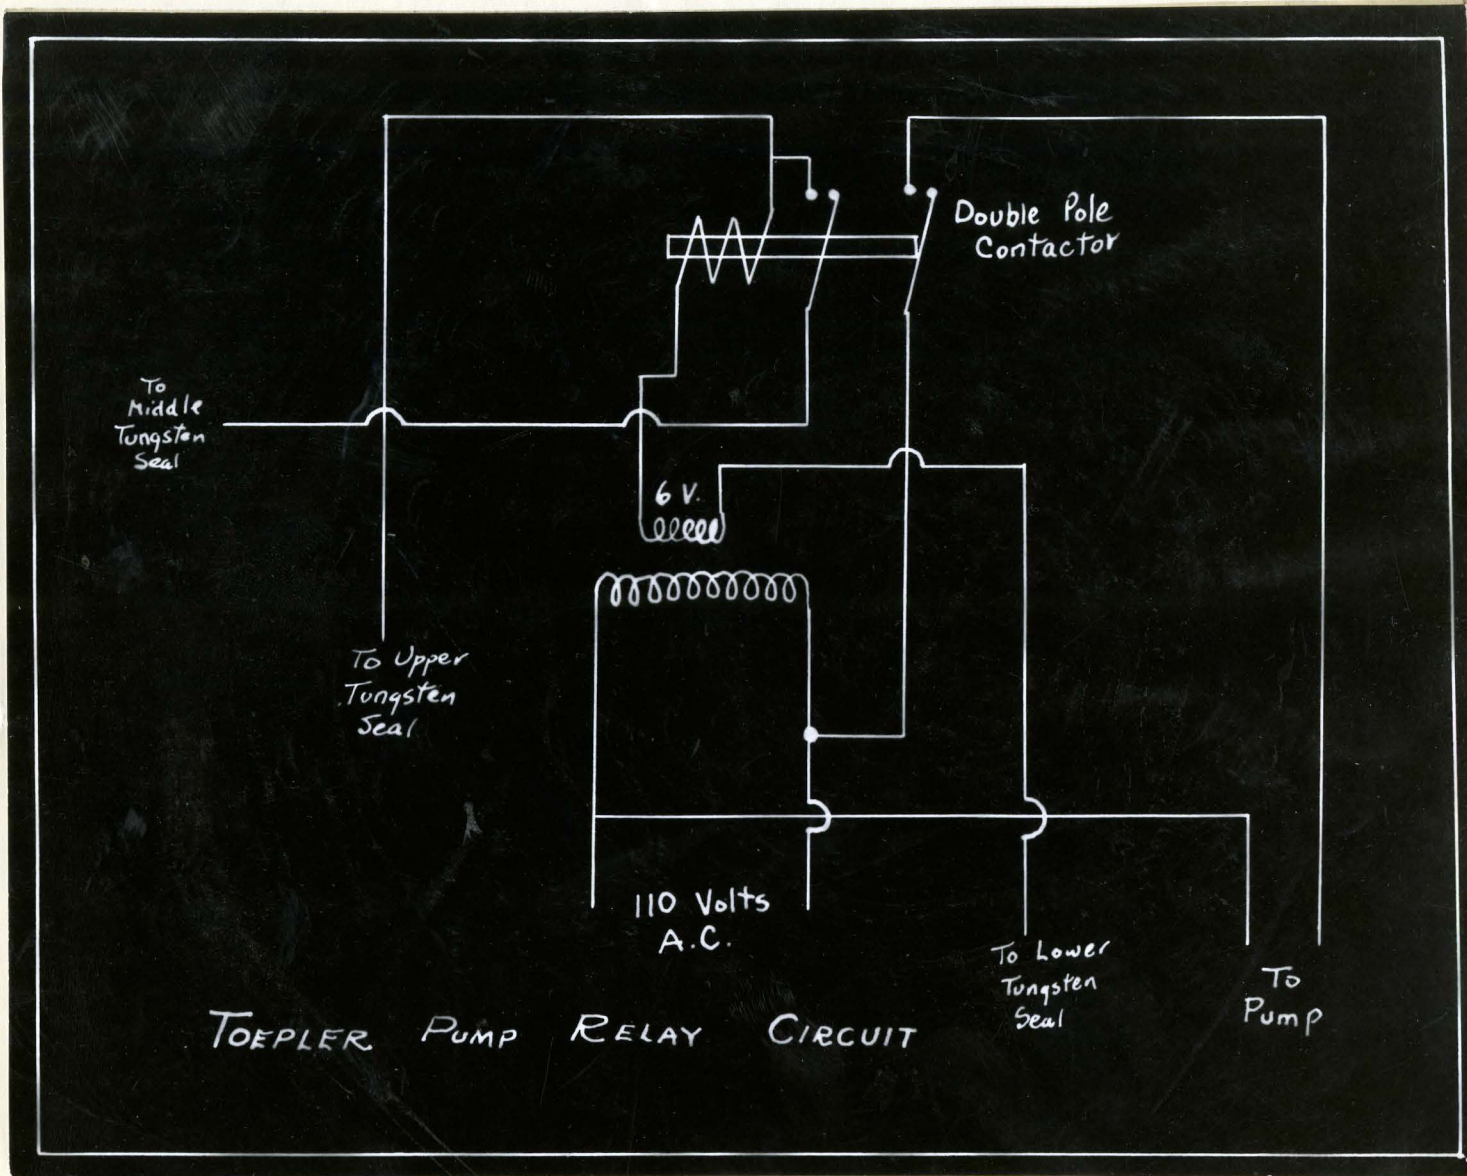 Double Pole
Contactor
To
Middle
Tungsten
Seal
6 V.
To Upper
Tungsten
Seal
110 Volts
A.C.
To Lower
Tungsten
Seal
To
Pump
TOEPLER PUMP RELAY CIRCUIT